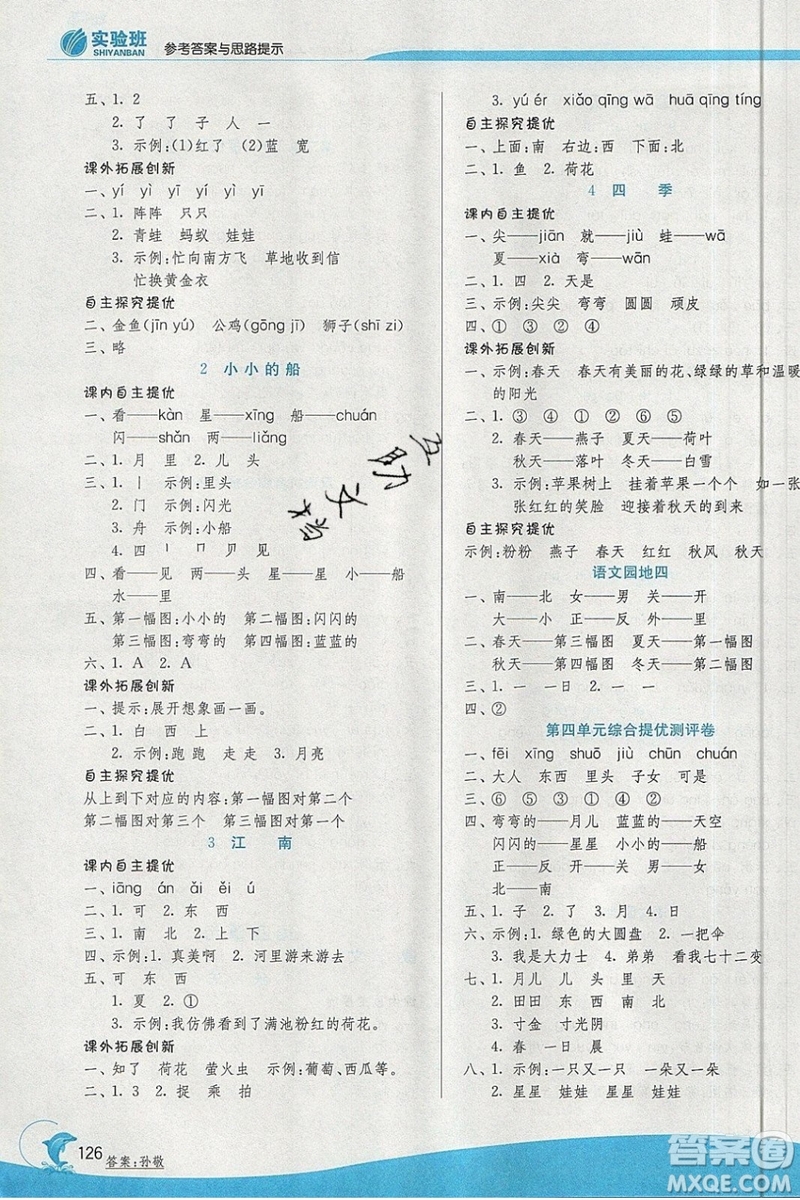 实验班
SHIYANBAN
参考答案与思路提示
五、1. 2
2. 了 了 子 人 一
3. 示例:(1)红了 (2)蓝 宽
课外拓展创新
一、yí yì yī yí yì yī
二、1. 阵阵 只只
2. 青蛙 蚂蚁 娃娃
3. 示例:忙向南方飞 草地收到信
忙换黄金衣
自主探究提优
二、金鱼(jīn yú) 公鸡(gōng jī) 狮子(shī zi)
三、略
2 小小的船
课内自主提优
一、看——kàn 星——xīng 船——chuán
闪——shǎn 两——liǎng
二、1. 月 里 2. 儿 头
三、1. 丨 示例:里头
2. 门 示例:闪光
3. 舟 示例:小船
4. 四 丨 冂 贝 见
四、看——见 头——里 星——星 小——船
水——里
五、第一幅图:小小的 第二幅图:闪闪的
第三幅图:弯弯的 第四幅图:蓝蓝的
六、1. A 2. A
课外拓展创新
一、提示:展开想象画一画。
二、1. 白 西 上
2. 示例:跑跑 走走 3. 月亮
自主探究提优
从上到下对应的内容:第一幅图对第二个
第二幅图对第三个 第三幅图对第一个
3 江 南
课内自主提优
一、iāng án ǎi ěi ú
二、1. 可 2. 东 西
三、1. 南 北 2. 上 下
四、示例:1. 真美啊 2. 河里游来游去
五、可 东 西
1. 夏 2. ①
3. 示例:我仿佛看到了满池粉红的荷花。
课外拓展创新
一、知了 荷花 萤火虫 示例:葡萄、西瓜等。
二、1. 3 2. 捉 乘 拍
3. yú ér xiǎo qīng wā huā qīng tíng
自主探究提优
一、上面:南 右边:西 下面:北
二、1. 鱼 2. 荷花
4 四 季
课内自主提优
一、尖——jiān 就——jiù 蛙——wā
夏——xià 弯——wān
二、1. 四 2. 天是
三、示例:尖尖 弯弯 圆圆 顽皮
四、① ③ ② ④
课外拓展创新
一、示例:春天 春天有美丽的花、绿绿的草和温暖
的阳光
二、1. ③ ④ ① ② ⑥ ⑤
2. 春天——燕子 夏天——荷叶
秋天——落叶 冬天——白雪
3. 示例:苹果树上 挂着苹果一个个 如一
张红红的笑脸 迎接着秋天的到来
自主探究提优
示例:粉粉 燕子 春天 红红 秋风 秋天
语文园地四
一、南——北 女——男 关——开
大——小 正——反 外——里
二、春天——第三幅图 夏天——第一幅图
秋天——第四幅图 冬天——第二幅图
三、1. 一 一日 2. 一 一
四、②
第四单元综合提优测评卷
一、fēi xīng shuō jiù chūn chuán
二、大人 东西 里头 子女 可是
三、⑥ ⑤ ③ ① ④ ②
四、弯弯的——月儿 蓝蓝的——天空
闪闪的——星星 小小的——船
正——反 开——关 里——外
北——南
五、1. 子 2. 了 3. 月 4. 日
六、示例:1. 绿色的大圆盘 2. 一把伞
3. 我是大力士 4. 弟弟 看我七十二变
七、1. 月儿 儿 头 里 天
2. 田田 东 西 南 北
3. 寸金 寸光阴
4. 春 一日 晨
八、1. 示例:一只又一只 一朵又一朵
2. 星星 娃娃 星星 娃娃
互助文档
126
答案:孙敬
答案圈
MXQE.COM